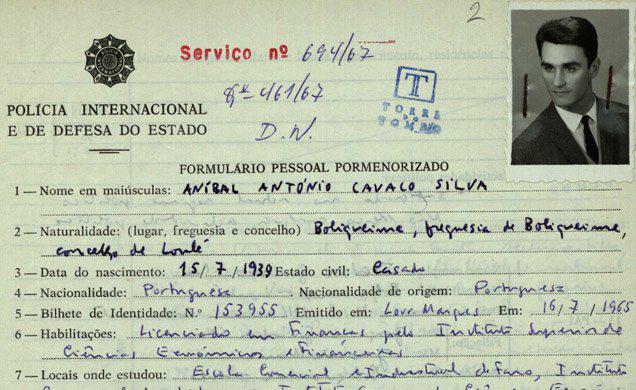 2
Serviço nº 694/67
461/67
D. N.
T
TORRE
DO
TOMBO
POLÍCIA INTERNACIONAL
E DE DEFESA DO ESTADO
FORMULÁRIO PESSOAL PORMENORIZADO
1 — Nome em maiúsculas: ANÍBAL ANTÓNIO CAVACO SILVA
2 — Naturalidade: (lugar, freguesia e concelho) Boliqueime, freguesia de Boliqueime,
concelho de Loulé
3 — Data do nascimento: 15 / 7 / 1939 Estado civil: Casado
4 — Nacionalidade: Portuguesa . Nacionalidade de origem: Portuguesa
5 — Bilhete de Identidade: N.º 153955 Emitido em: Lour. Marques Em: 16/7/1965
6 — Habilitações: Licenciado em Finanças pelo Instituto Superior de
Ciências Económicas e Financeiras
7 — Locais onde estudou: Escola Comercial e Industrial de Faro, Instituto